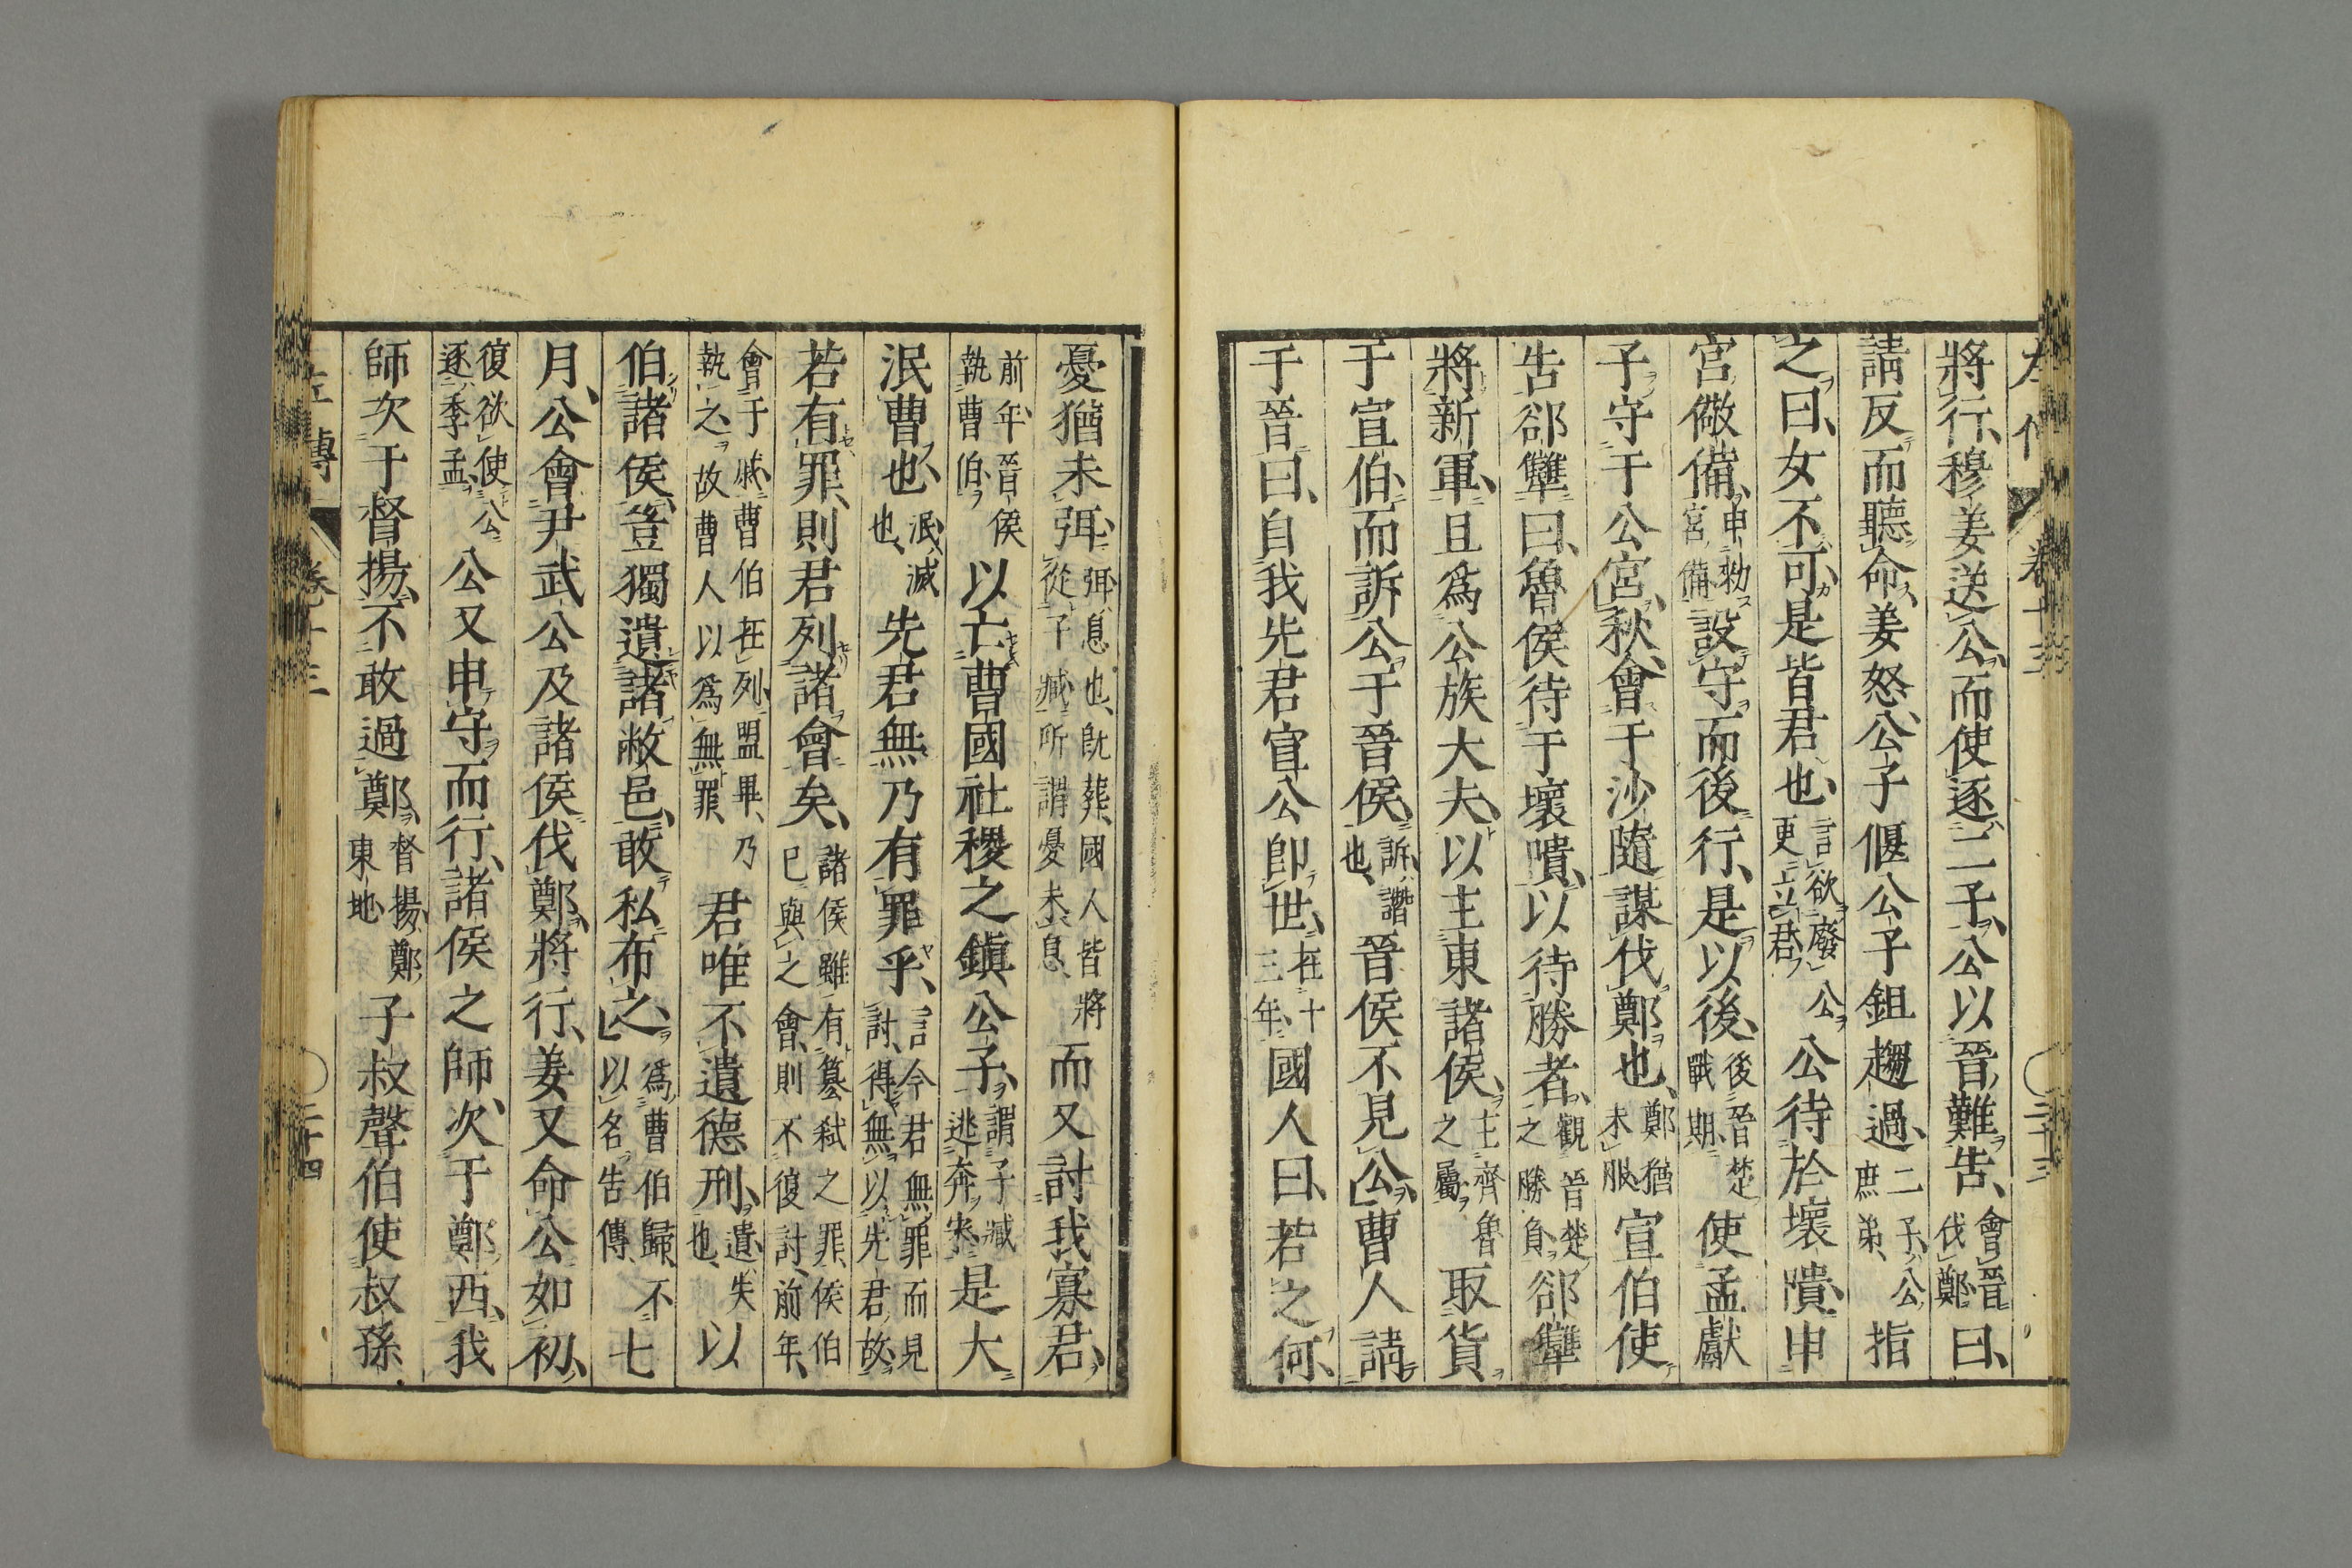 將行穆姜送公而使逐二子公以晉難告會晉伐鄭曰
請反而聽命姜怒公子偃公子鉏趨過二子公庶弟指
之曰女不可是皆君也言欲廢公更立君公待於壞隤申
宮儆備申勑宮備設守而後行是以後後晉楚戰期使孟獻
子守于公宮秋會于沙隨謀伐鄭也鄭猶未服宣伯使
告郤犨曰魯侯待于壞隤以待勝者觀晉楚之勝負郤犨
將新軍且爲公族大夫以主東諸侯主齊魯之屬取貨
于宣伯而訴公于晉侯訴譖也晉侯不見公曹人請
于晉曰自我先君宣公卽世在十三年國人曰若之何
憂猶未弭弭息也旣葬國人皆將從子臧所謂憂未息而又討我寡君
前年晉侯執曹伯以亡曹國社稷之鎭公子謂子臧逃奔宋是大
泯曹也泯滅也先君無乃有罪乎言今君無罪而見討得無以先君故
若有罪則君列諸會矣諸侯雖有簒弑之罪侯伯已與之會則不復討前年
會于戚曹伯在列盟畢乃執之故曹人以爲無罪君唯不遺德刑遺失也以
伯諸侯豈獨遺諸敝邑敢私布之爲曹伯歸不以名告傳七
月公會尹武公及諸侯伐鄭將行姜又命公如初
復欲使公逐季孟公又申守而行諸侯之師次于鄭西我
師次于督揚不敢過鄭督揚鄭東地子叔聲伯使叔孫
左傳 卷十三 二十四